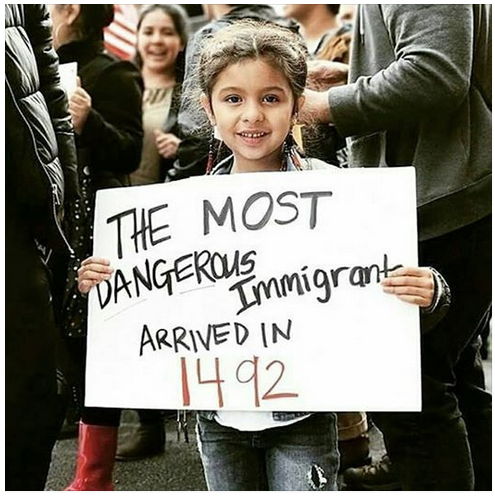 THE MOST
DANGEROUS
Immigrant
ARRIVED IN
1492